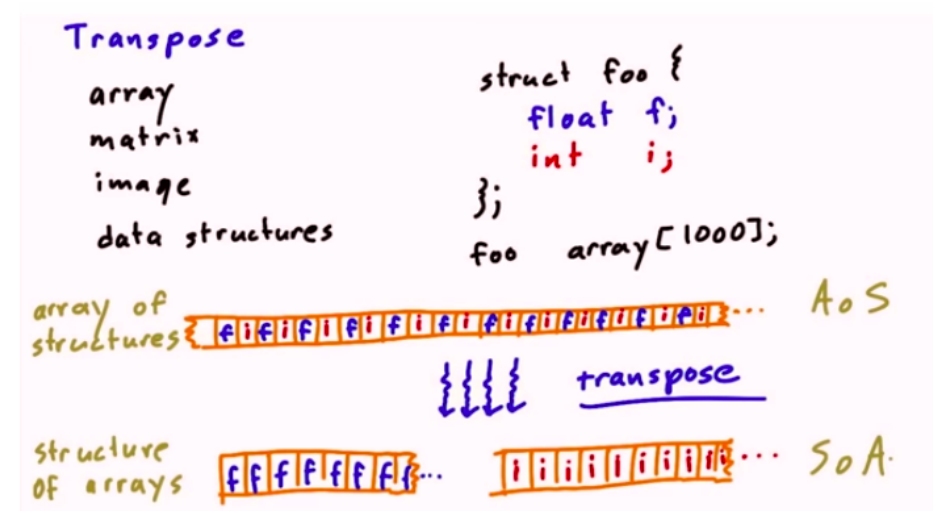 Transpose
array
matrix
image
data structures
struct foo {
float f;
int i;
};
foo array[1000];
array of
structures
f i f i f i f i f i f i f i f i f i f i f i ...
AoS
transpose
structure
of arrays
f f f f f f f f ...
i i i i i i i i i ...
SoA